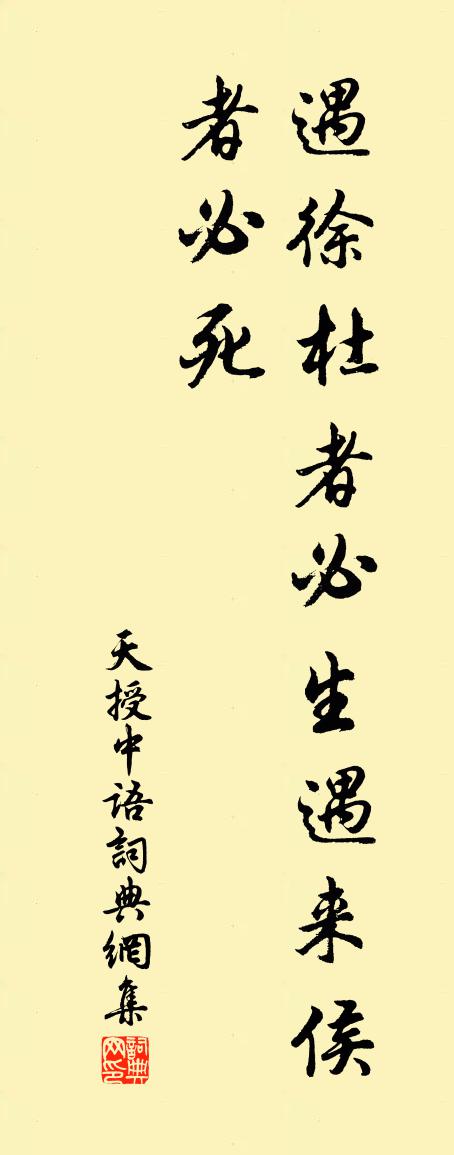 遇徐杜者必生遇来侯
者必死
天授中语詞典網集
詞典网印